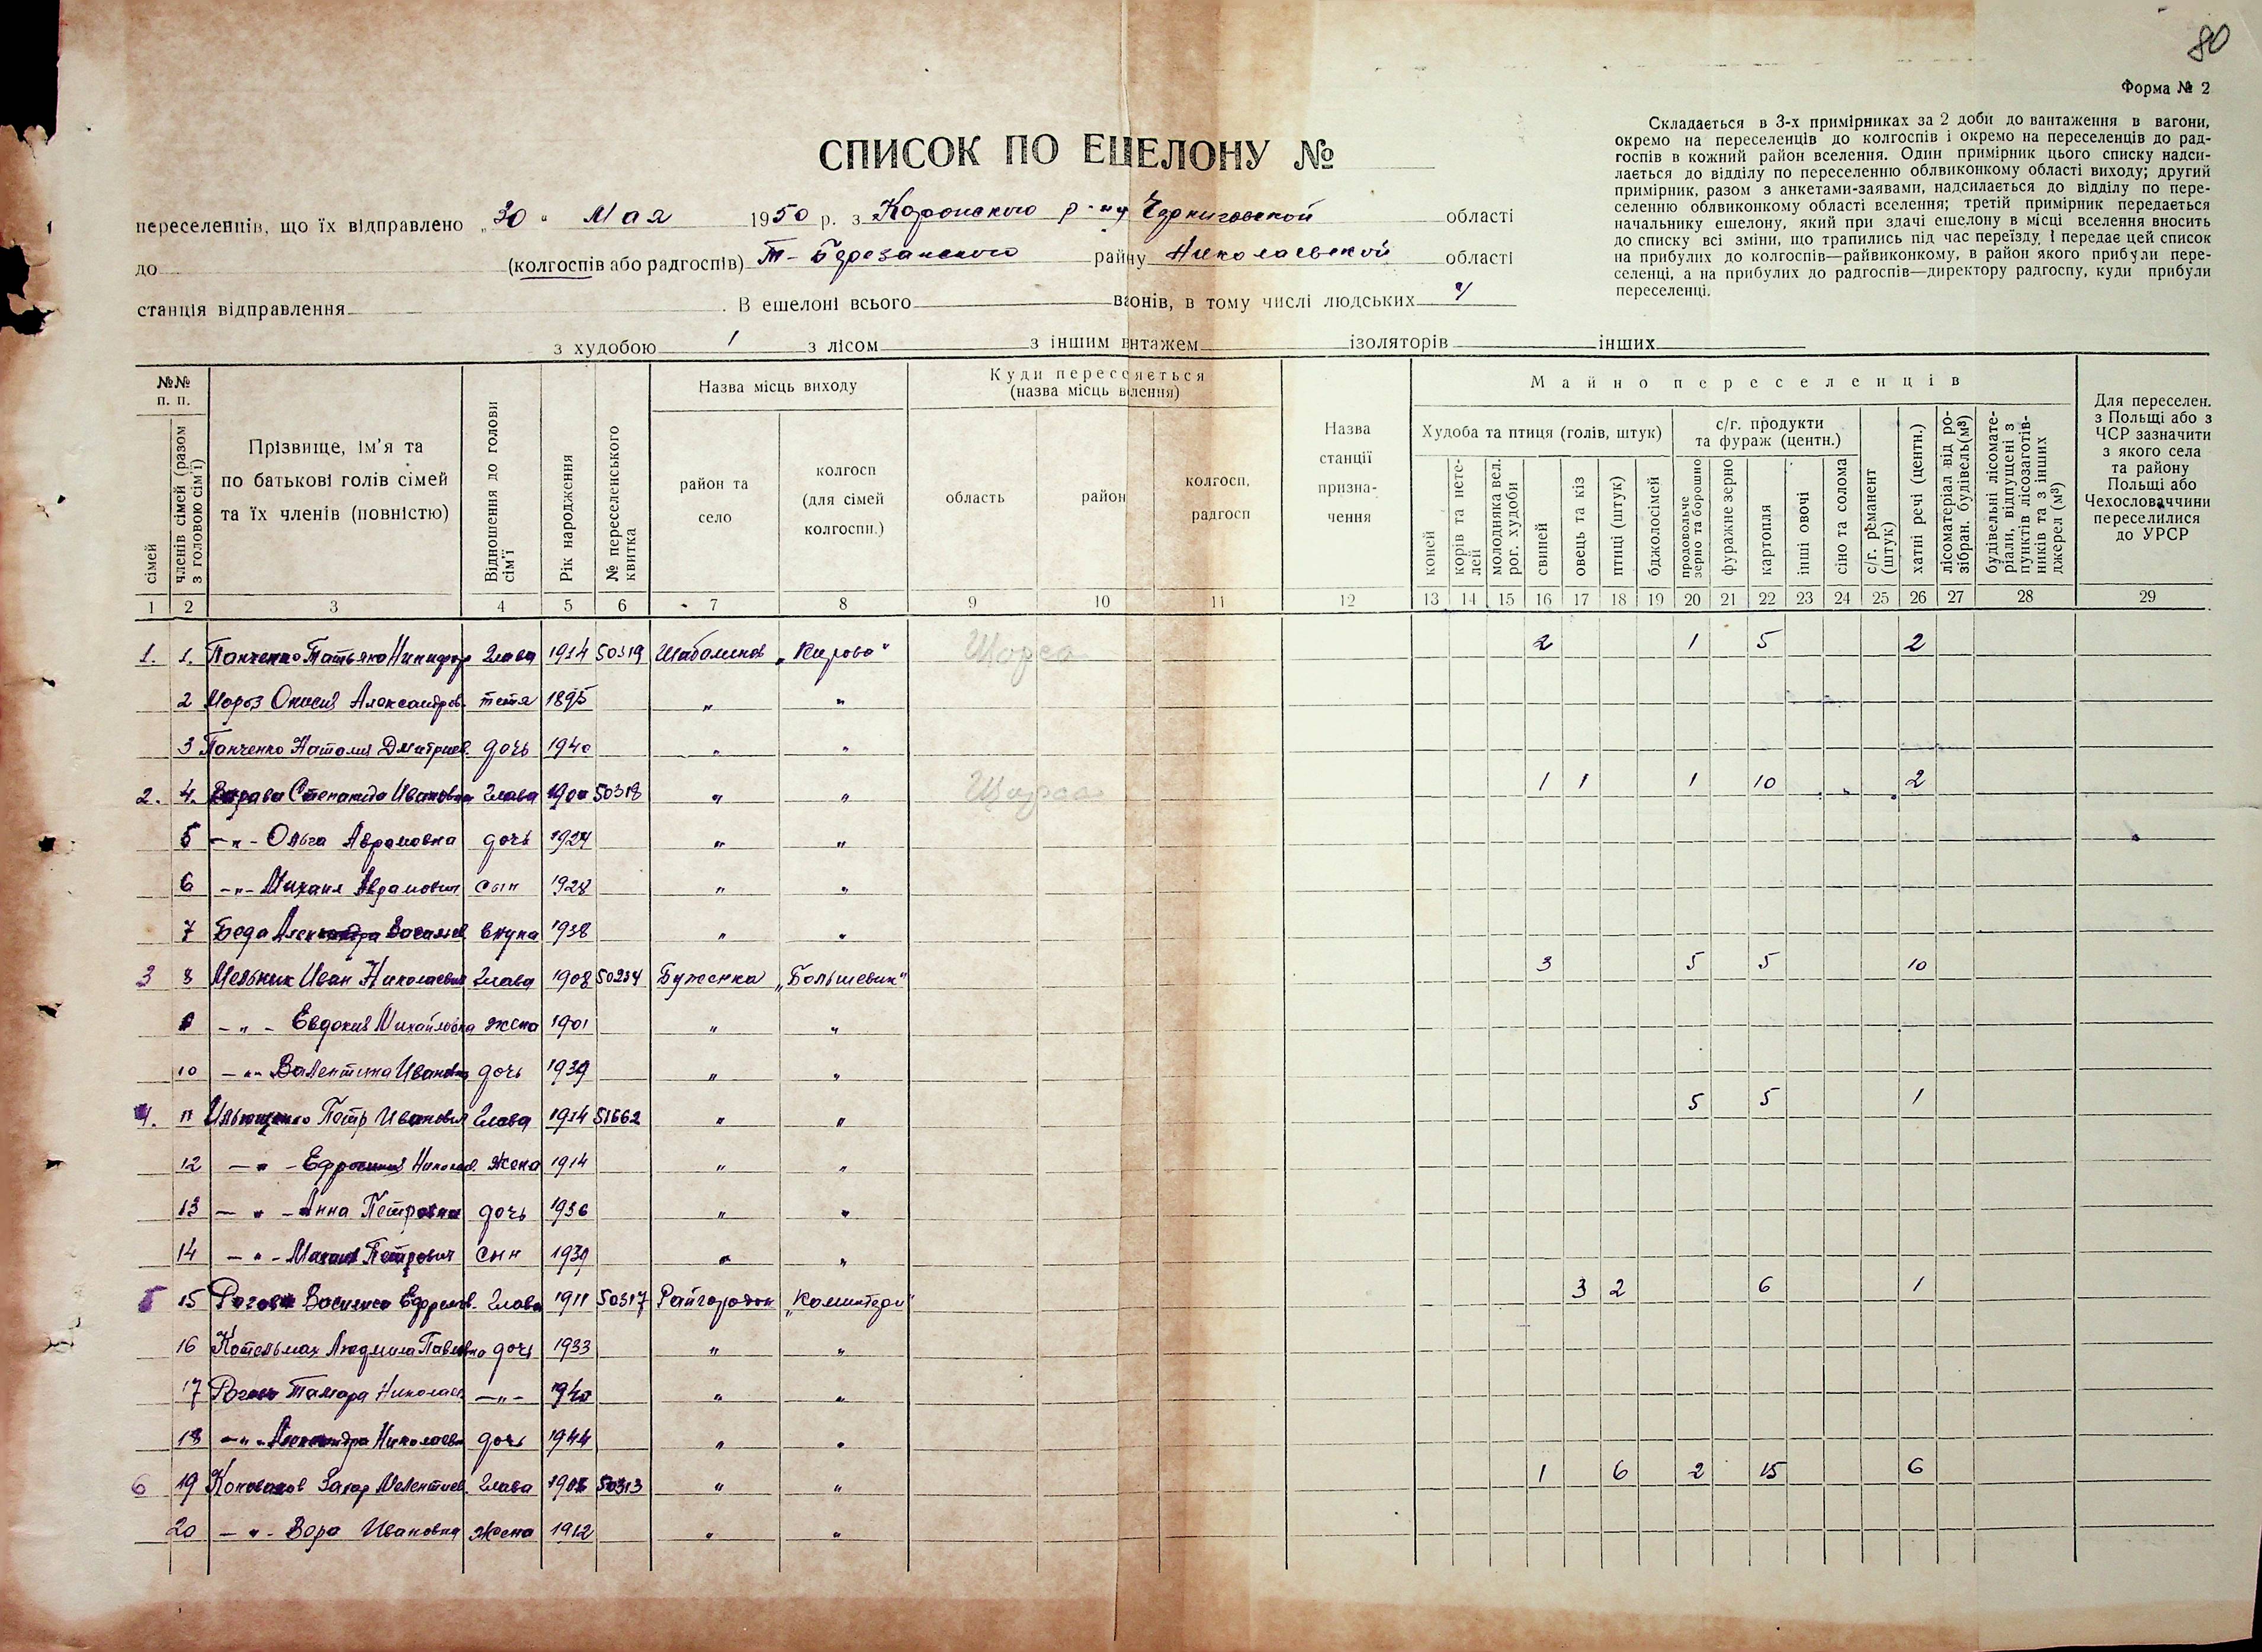 80
Форма № 2
Складається в 3-х примірниках за 2 доби до вантаження в вагони,
окремо на переселенців до колгоспів і окремо на переселенців до рад-
госпів в кожний район вселення. Один примірник цього списку надси-
лається до відділу по переселенню облвиконкому області виходу; другий
примірник, разом з анкетами-заявами, надсилається до відділу по пере-
селенню облвиконкому області вселення; третій примірник передається
начальнику ешелону, який при здачі ешелону в місці вселення вносить
до списку всі зміни, що трапились під час переїзду і передає цей список
на прибулих до колгоспів—райвиконкому, в район якого прибули пере-
селенці, а на прибулих до радгоспів—директору радгоспу, куди прибули
переселенці.
СПИСОК ПО ЕШЕЛОНУ №
переселенців, що їх відправлено „30" Мая 1950 р. з Коропского р-ну Черниговской області
до (колгоспів або радгоспів) Т-Березанского району Николаевской області
станція відправлення . В ешелоні всього вагонів, в тому числі людських
з худобою 1 з лісом з іншим вантажем ізоляторів інших
№№ п. п.
сімей
членів сімей (разом з головою сім'ї)
Прізвище, ім'я та по батькові голів сімей та їх членів (повністю)
Відношення до голови сім'ї
Рік народження
№ переселенського квитка
Назва місць виходу
район та село
колгосп (для сімей колгоспн.)
Куди переселяється (назва місць вселення)
область
район
колгосп, радгосп
Назва станції призна- чення
Майно переселенців
Худоба та птиця (голів, штук)
коней
корів та нете- лей
молодняка вел. рог. худоби
свиней
овець та кіз
птиці (штук)
бджолосімей
с/г. продукти та фураж (центн.)
продовольче зерно та борошно
фуражне зерно
картопля
інші овочі
сіно та солома
с/г. реманент (штук)
хатні речі (центн.)
лісоматеріал від ро- зібран. будівель (м³)
будівельні лісомате- ріали, відпущені з пунктів лісозаготів- ників та з інших джерел (м³)
Для переселен. з Польщі або з ЧСР зазначити з якого села та району Польщі або Чехословаччини переселилися до УРСР
1 2 3 4 5 6 7 8 9 10 11 12 13 14 15 16 17 18 19 20 21 22 23 24 25 26 27 28 29
1. 1. Панченко Татьяна Никифор Глава 1914 50319 Шабалинов „Кирова" Щорса 2 1 5 2
2 Мороз Александров. тетя 1895 " "
3 Панченко Наталия Дмитриев. дочь 1940 " "
2. 4. Степанида Ивановна Глава 1900 50318 " " Щорса 1 1 1 10 2
5 —"— Ольга Аврамовна дочь 1927 " "
6 —"— Михаил Аврамович сын 1928 " "
7 Беда Васильев внука 1938 " "
3 8 Мельник Иван Николаевич Глава 1908 50234 Буженка „Большевик" 3 5 5 10
—"— Евдокия Михайловна жена 1901 " "
10 —"— Валентина Ивановна дочь 1939 " "
4. 11 Ильющенко Петр Иванович Глава 1914 51662 " " 5 5 1
12 —"— Ефросиния Николаев. жена 1914 " "
13 —"— Анна Петровна дочь 1936 " "
14 —"— Петрович сын 1939 " "
5 15 Василиса Ефремов. Глава 1911 50317 Райгородок „Коминтерн" 3 2 6 1
16 Котельмах Людмила Павловна дочь 1933 " "
17 Тамара Николаев —"— 1940 " "
18 —"— Александра Николаевн дочь 1944 " "
6 19 Захар Мелентиев. Глава 50313 " " 1 6 2 15 6
20 —"— Вера Ивановна жена 1912 " "